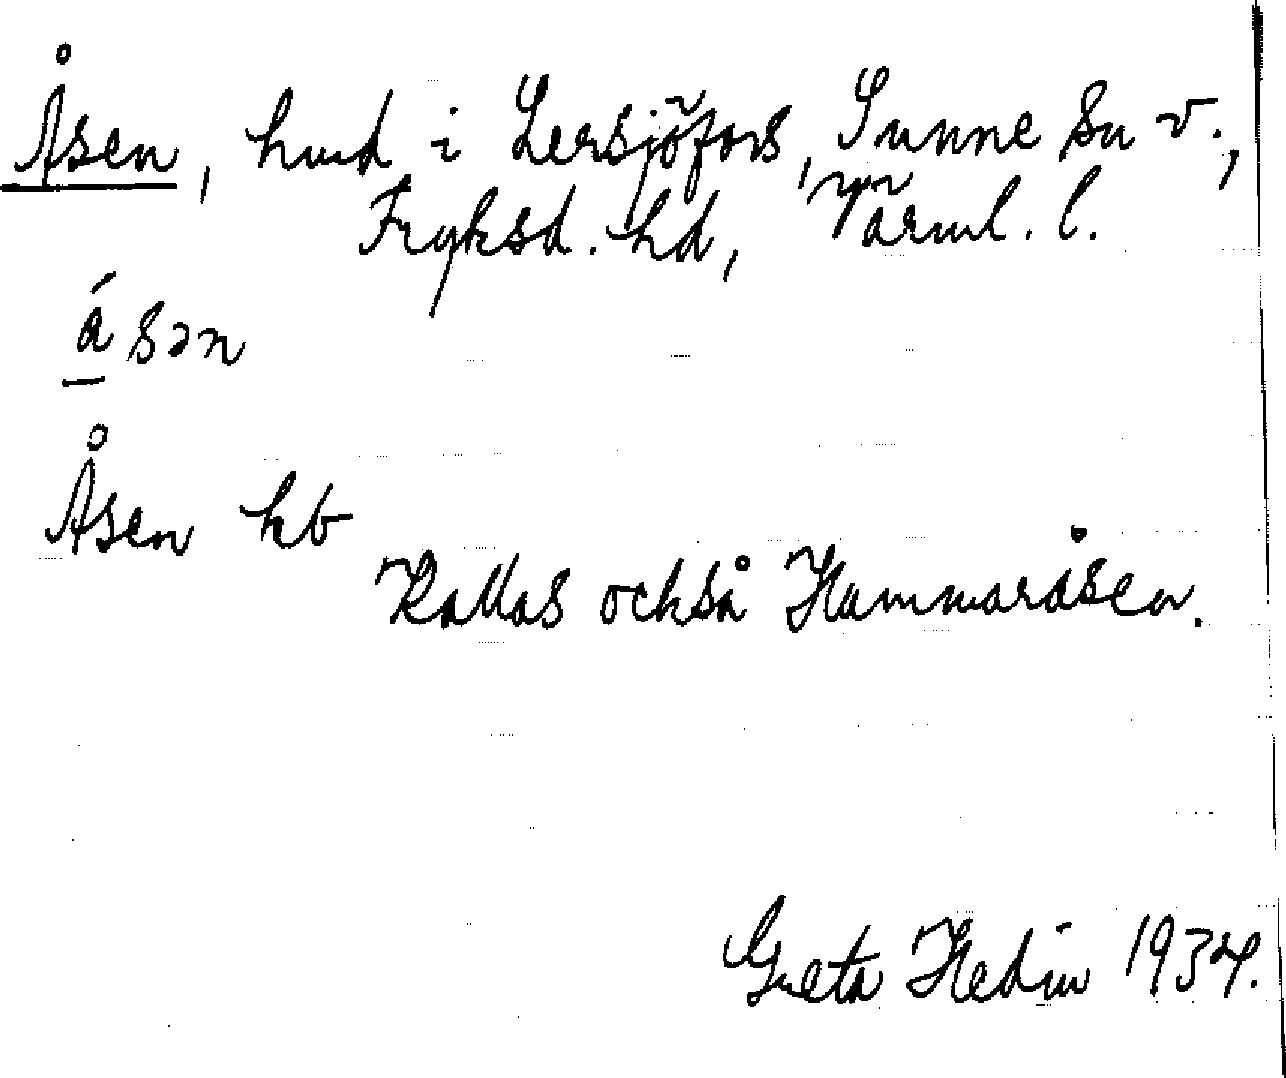 Åsen, hmd i Lersjöfors, Sunne sn v.,
Fryksd. hd, Värml. l.
ásən
Åsen kb
Kallas också Hammaråsen.
Greta Hedin 1934.